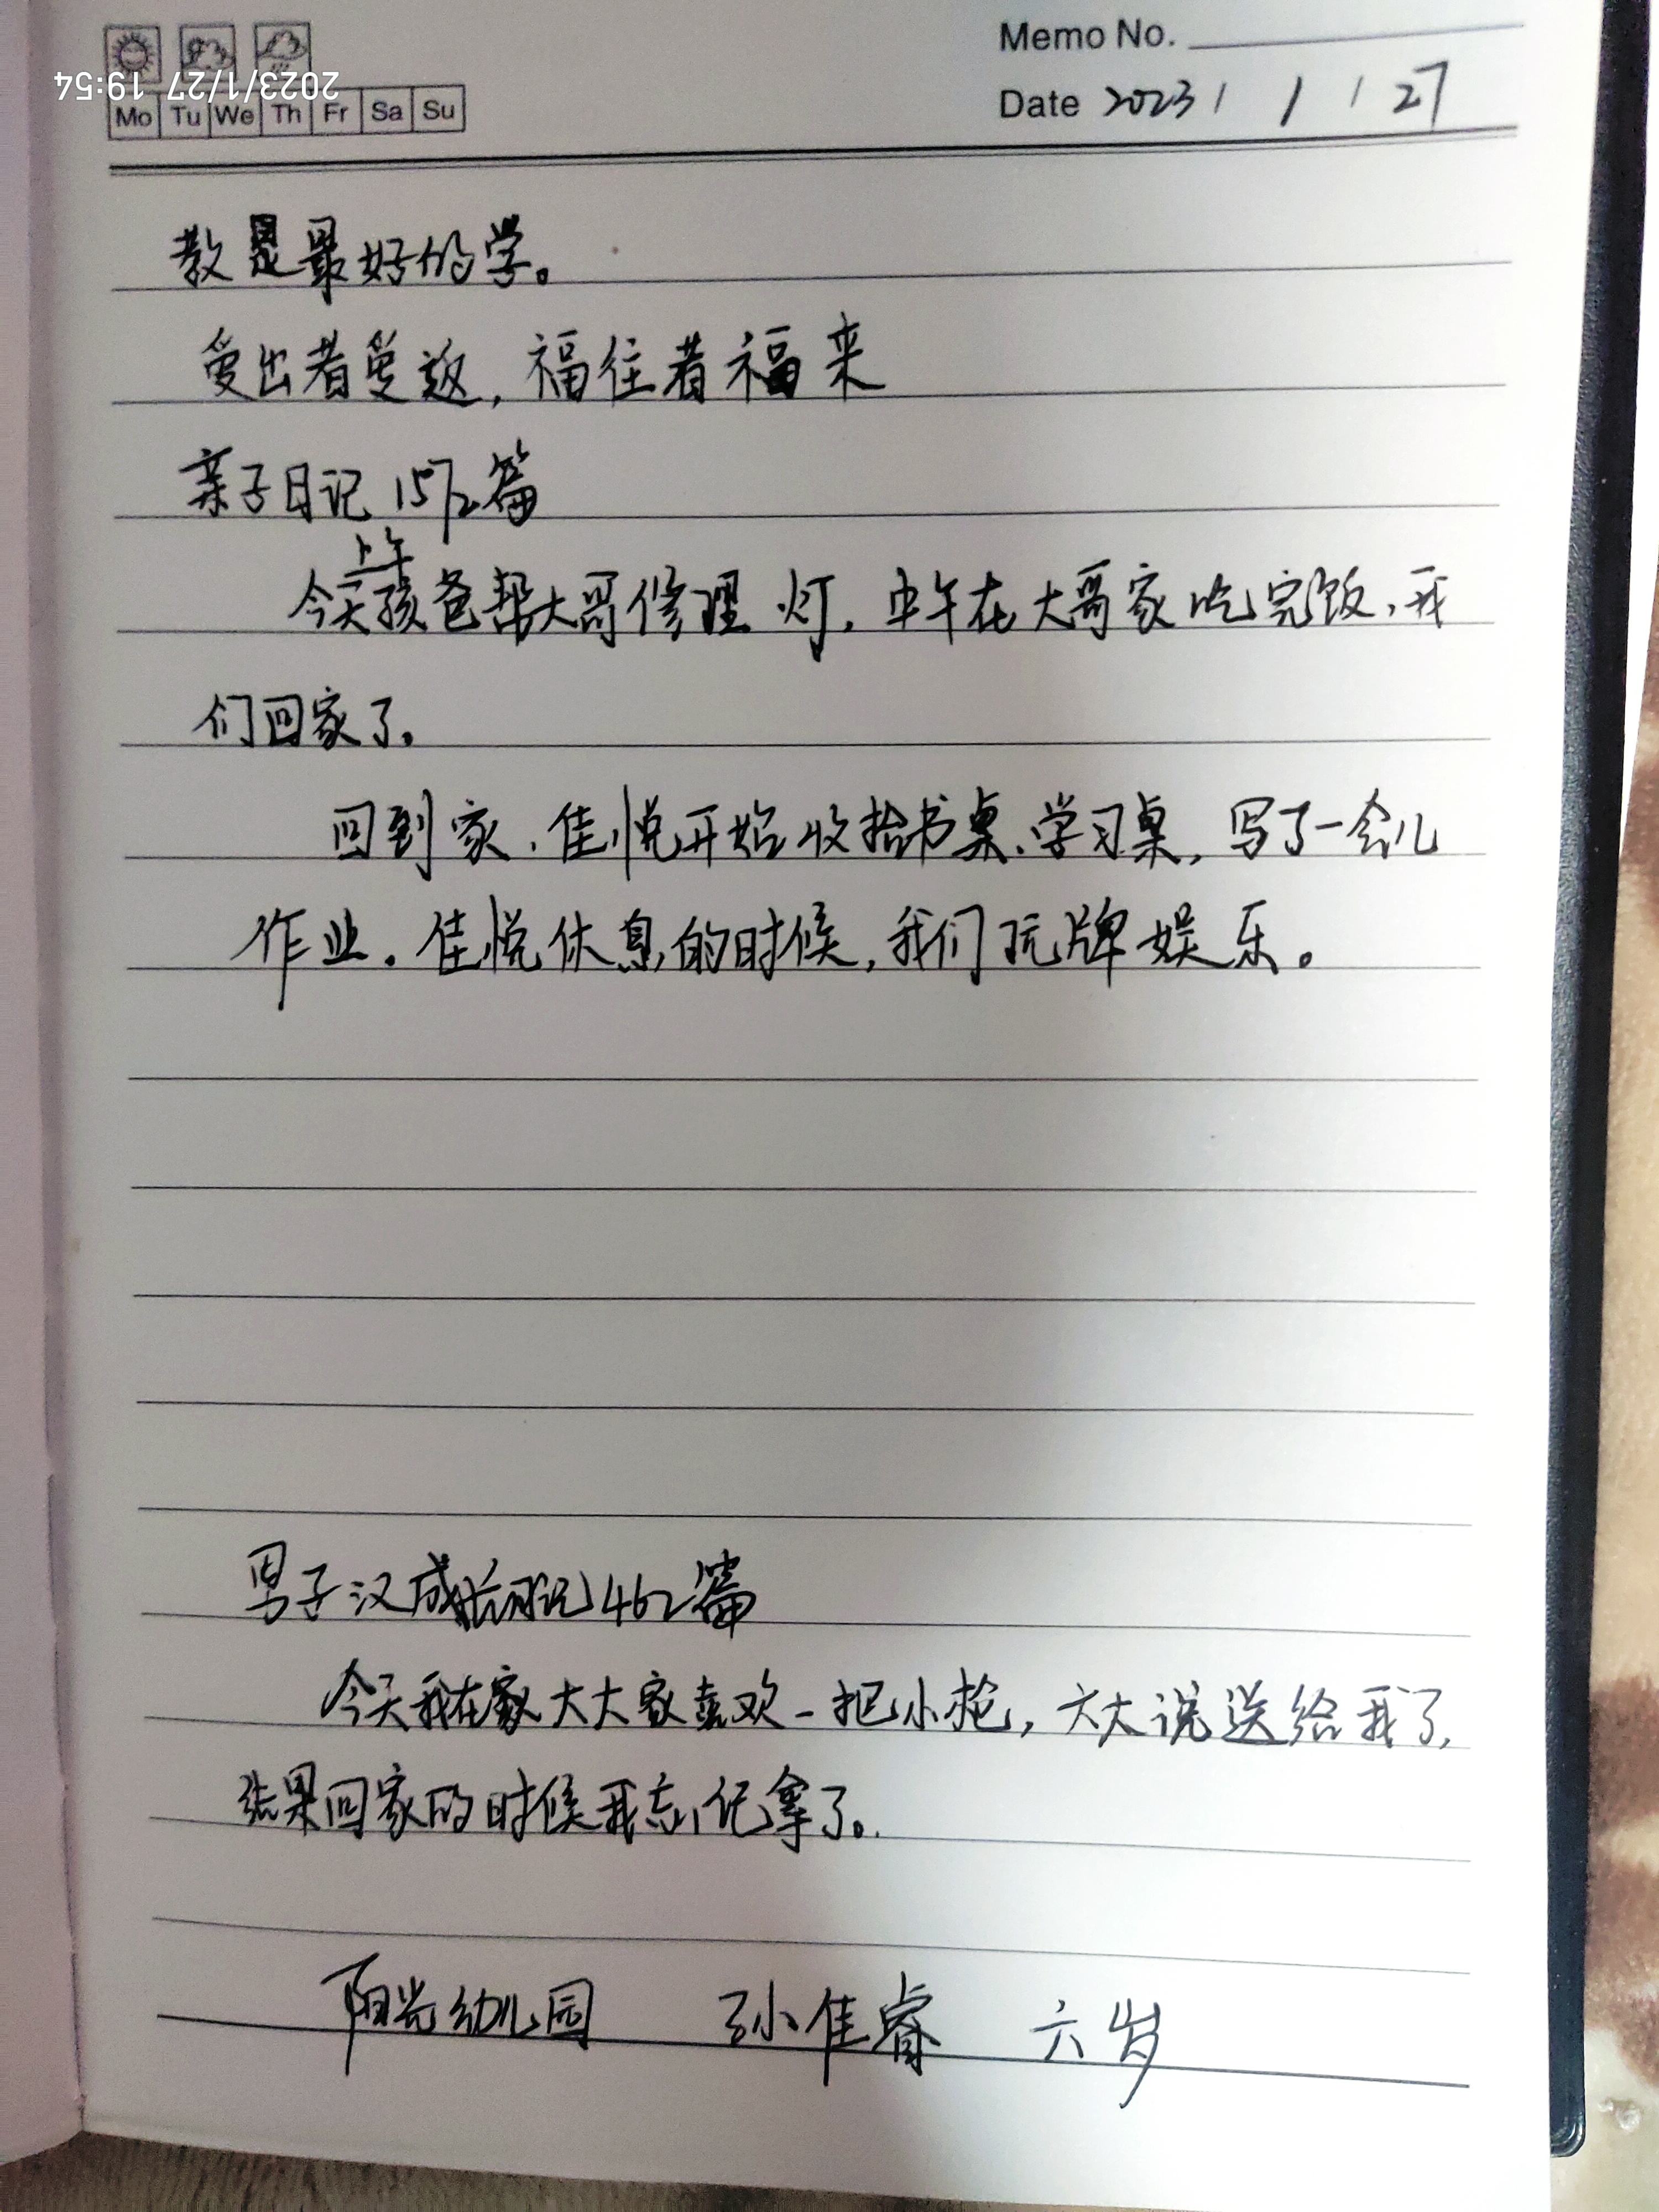 Memo No.
2023/1/27 19:54
Mo Tu We Th Fr Sa Su
Date 2023 / 1 / 27
教是最好的学。
爱出者爱返，福往者福来
亲子日记1572篇
上午
今天孩爸帮大哥修理灯，中午在大哥家吃完饭，我
们回家了。
回到家，佳悦开始收拾书桌、学习桌，写了一会儿
作业。佳悦休息的时候，我们玩牌娱乐。
男子汉成长日记462篇
今天我在家大大家喜欢一把小枪，大大说送给我了，
结果回家的时候我忘记拿了。
阳光幼儿园 孙佳睿 六岁